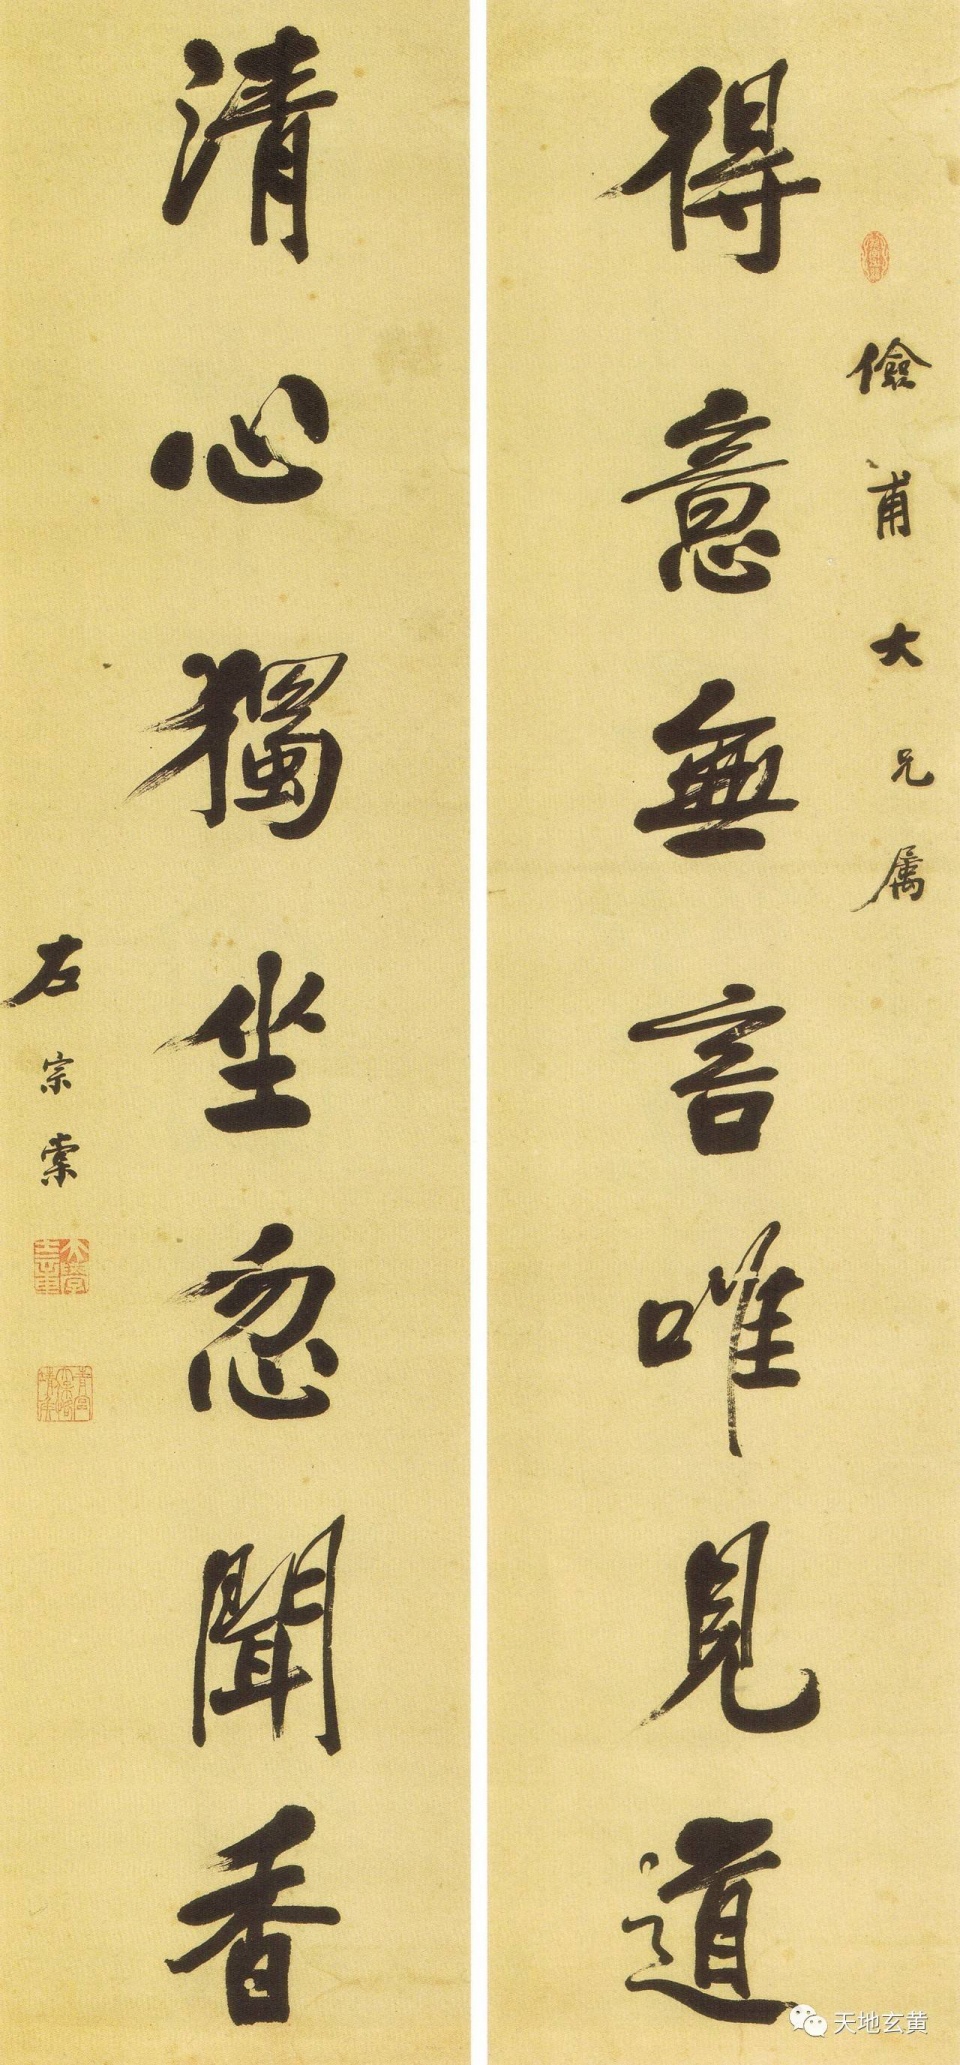 儉甫大兄属
得意無言唯見道
清心獨坐忽聞香
左宗棠
天地玄黄